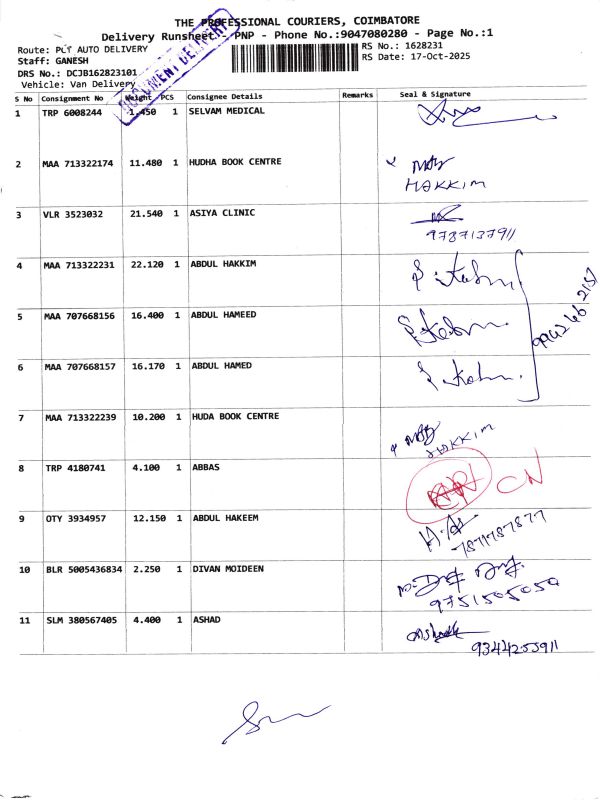 THE PROFESSIONAL COURIERS, COIMBATORE
Delivery Runsheet - PNP - Phone No.:9047080280 - Page No.:1
Route: PLT AUTO DELIVERY
RS No.: 1628231
Staff: GANESH
RS Date: 17-Oct-2025
DRS No.: DCJB162823101
Vehicle: Van Delivery
DOCUMENT DELIVERY
S No Consignment No Weight PCS Consignee Details Remarks Seal & Signature
1 TRP 6008244 1.450 1 SELVAM MEDICAL
2 MAA 713322174 11.480 1 HUDHA BOOK CENTRE
HAKKIM
3 VLR 3523032 21.540 1 ASIYA CLINIC
9787137911
4 MAA 713322231 22.120 1 ABDUL HAKKIM
5 MAA 707668156 16.400 1 ABDUL HAMEED
6 MAA 707668157 16.170 1 ABDUL HAMED
7 MAA 713322239 10.200 1 HUDA BOOK CENTRE
HAKKIM
8 TRP 4180741 4.100 1 ABBAS
CN
9 OTY 3934957 12.150 1 ABDUL HAKEEM
7871787877
10 BLR 5005436834 2.250 1 DIVAN MOIDEEN
9751505050
11 SLM 380567405 4.400 1 ASHAD
9344255911